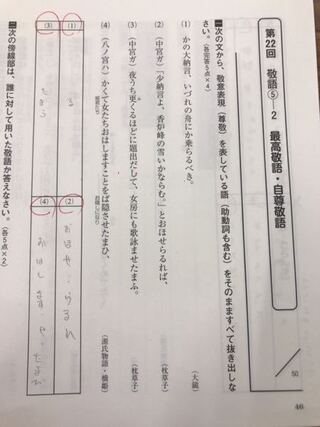 第22回 敬語⑤-2 最高敬語・自尊敬語
50
一 次の文から、敬意表現(尊敬)を表している語(助動詞も含む)をそのまますべて抜き出しなさい。(各完答5点×4)
(1) かの大納言、いづれの舟にか乗らるべき。 (大鏡)
(2) (中宮ガ)「少納言よ、香炉峰の雪いかならむ。」とおほせらるれば、 (枕草子)
(3) (中宮ガ)夜うち更くるほどに題出だして、女房にも歌詠ませたまふ。 (枕草子)
(4) (八ノ宮ハ)かくて女たちおはしますことをば隠させたまひ、 (源氏物語・橋姫)
(1) る
(2) おほせ・らるれ
(3)
(4) おはします せ・たまひ
次の傍線部は、誰に対して用いた敬語か答えなさい。(各5点×2)
46